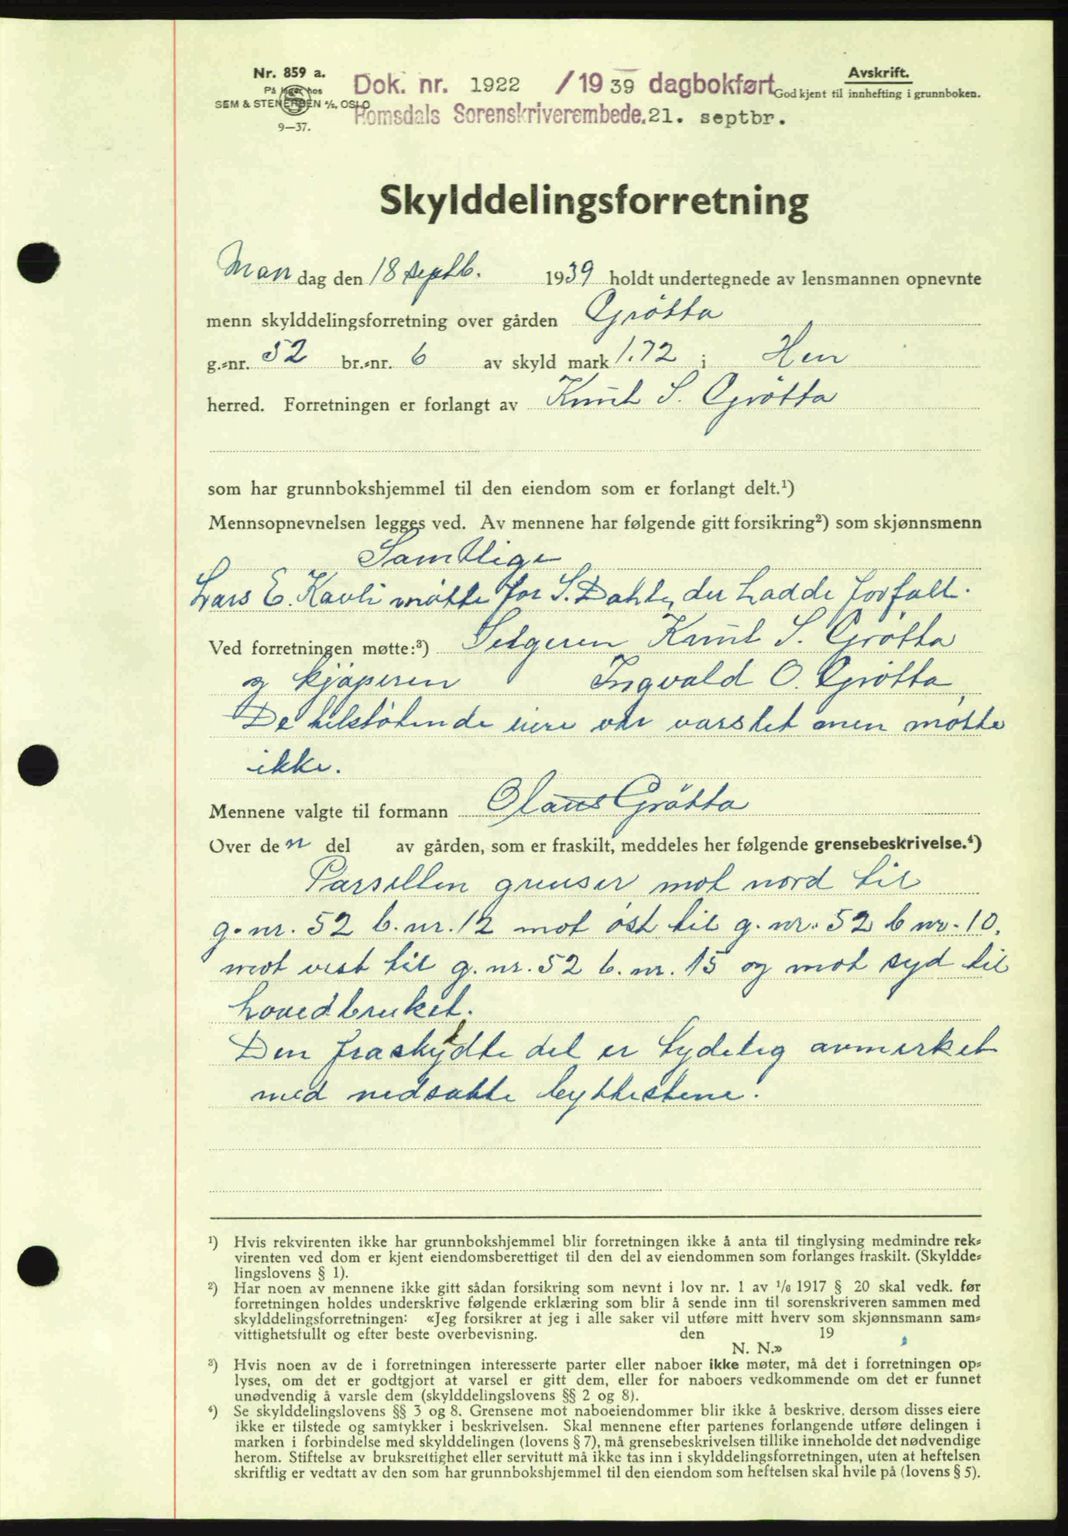 Nr. 859 a.
På lager hos
SEM & STENERSEN A/S, OSLO
9—37.
Dok. nr. 1922 /1939 dagbokført
Romsdals Sorenskriverembede. 21. septbr.
Avskrift.
God kjent til innhefting i grunnboken.
Skylddelingsforretning
Mandag den 18 septb. 1939 holdt undertegnede av lensmannen opnevnte
menn skylddelingsforretning over gården Grötta
g.-nr. 52 br.-nr. 6 av skyld mark 1.72 i Hen
herred. Forretningen er forlangt av Knut S. Grötta
som har grunnbokshjemmel til den eiendom som er forlangt delt.¹)
Mennsopnevnelsen legges ved. Av mennene har følgende gitt forsikring²) som skjønnsmenn
Samtlige
Lars E. Kavli møtte for S. Dahle, der hadde forfall.
Ved forretningen møtte:³) Selgeren Knut S. Grötta
og kjøperen Ingvald O. Grötta
De tilstøtende eiere var varslet men møtte
ikke.
Mennene valgte til formann Olaus Grötta
Over den del av gården, som er fraskilt, meddeles her følgende grensebeskrivelse.⁴)
Parsellen grenser mot nord til
g.nr. 52 b.nr. 12 mot öst til g.nr. 52 b nr. 10.
mot vest til g.nr. 52 b.nr. 15 og mot syd til
hovedbruket.
Den fraskyldte del er tydelig avmerket
med nedsatte byttestene.
¹) Hvis rekvirenten ikke har grunnbokshjemmel blir forretningen ikke å anta til tinglysing medmindre rek-
virenten ved dom er kjent eiendomsberettiget til den del av eiendommen som forlanges fraskilt. (Skyldde-
lingslovens § 1).
²) Har noen av mennene ikke gitt sådan forsikring som nevnt i lov nr. 1 av 1/6 1917 § 20 skal vedk. før
forretningen holdes underskrive følgende erklæring som blir å sende inn til sorenskriveren sammen med
skylddelingsforretningen: «Jeg forsikrer at jeg i alle saker vil utføre mitt hverv som skjønnsmann sam-
vittighetsfullt og efter beste overbevisning. den 19
N. N.»
³) Hvis noen av de i forretningen interesserte parter eller naboer ikke møter, må det i forretningen op-
lyses, om det er godtgjort at varsel er gitt dem, eller for naboers vedkommende om det er funnet
unødvendig å varsle dem (skylddelingslovens §§ 2 og 8).
⁴) Se skylddelingslovens §§ 3 og 8. Grensene mot naboeiendommer blir ikke å beskrive, dersom disses eiere
ikke er tilstede og samtykker i beskrivelsen. Skal mennene efter partenes forlangende utføre delingen i
marken i forbindelse med skylddelingen (lovens § 7), må grensebeskrivelsen tillike inneholde det nødvendige
herom. Stiftelse av bruksrettighet eller servitutt må ikke tas inn i skylddelingsforretningen, uten at heftelsen
skriftlig er vedtatt av den som har grunnbokshjemmel til den eiendom som heftelsen skal hvile på (lovens § 5).